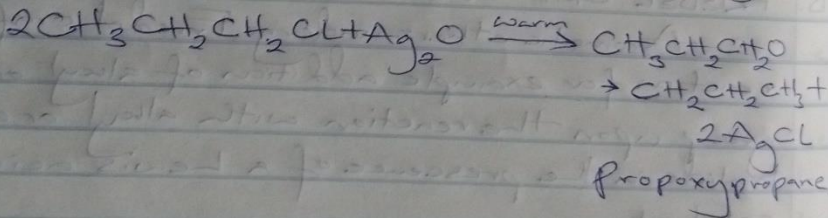 2CH₃CH₂CH₂Cl+Ag₂O warm→ CH₃CH₂CH₂O
→ CH₂CH₂CH₃+
2AgCl
Propoxypropane